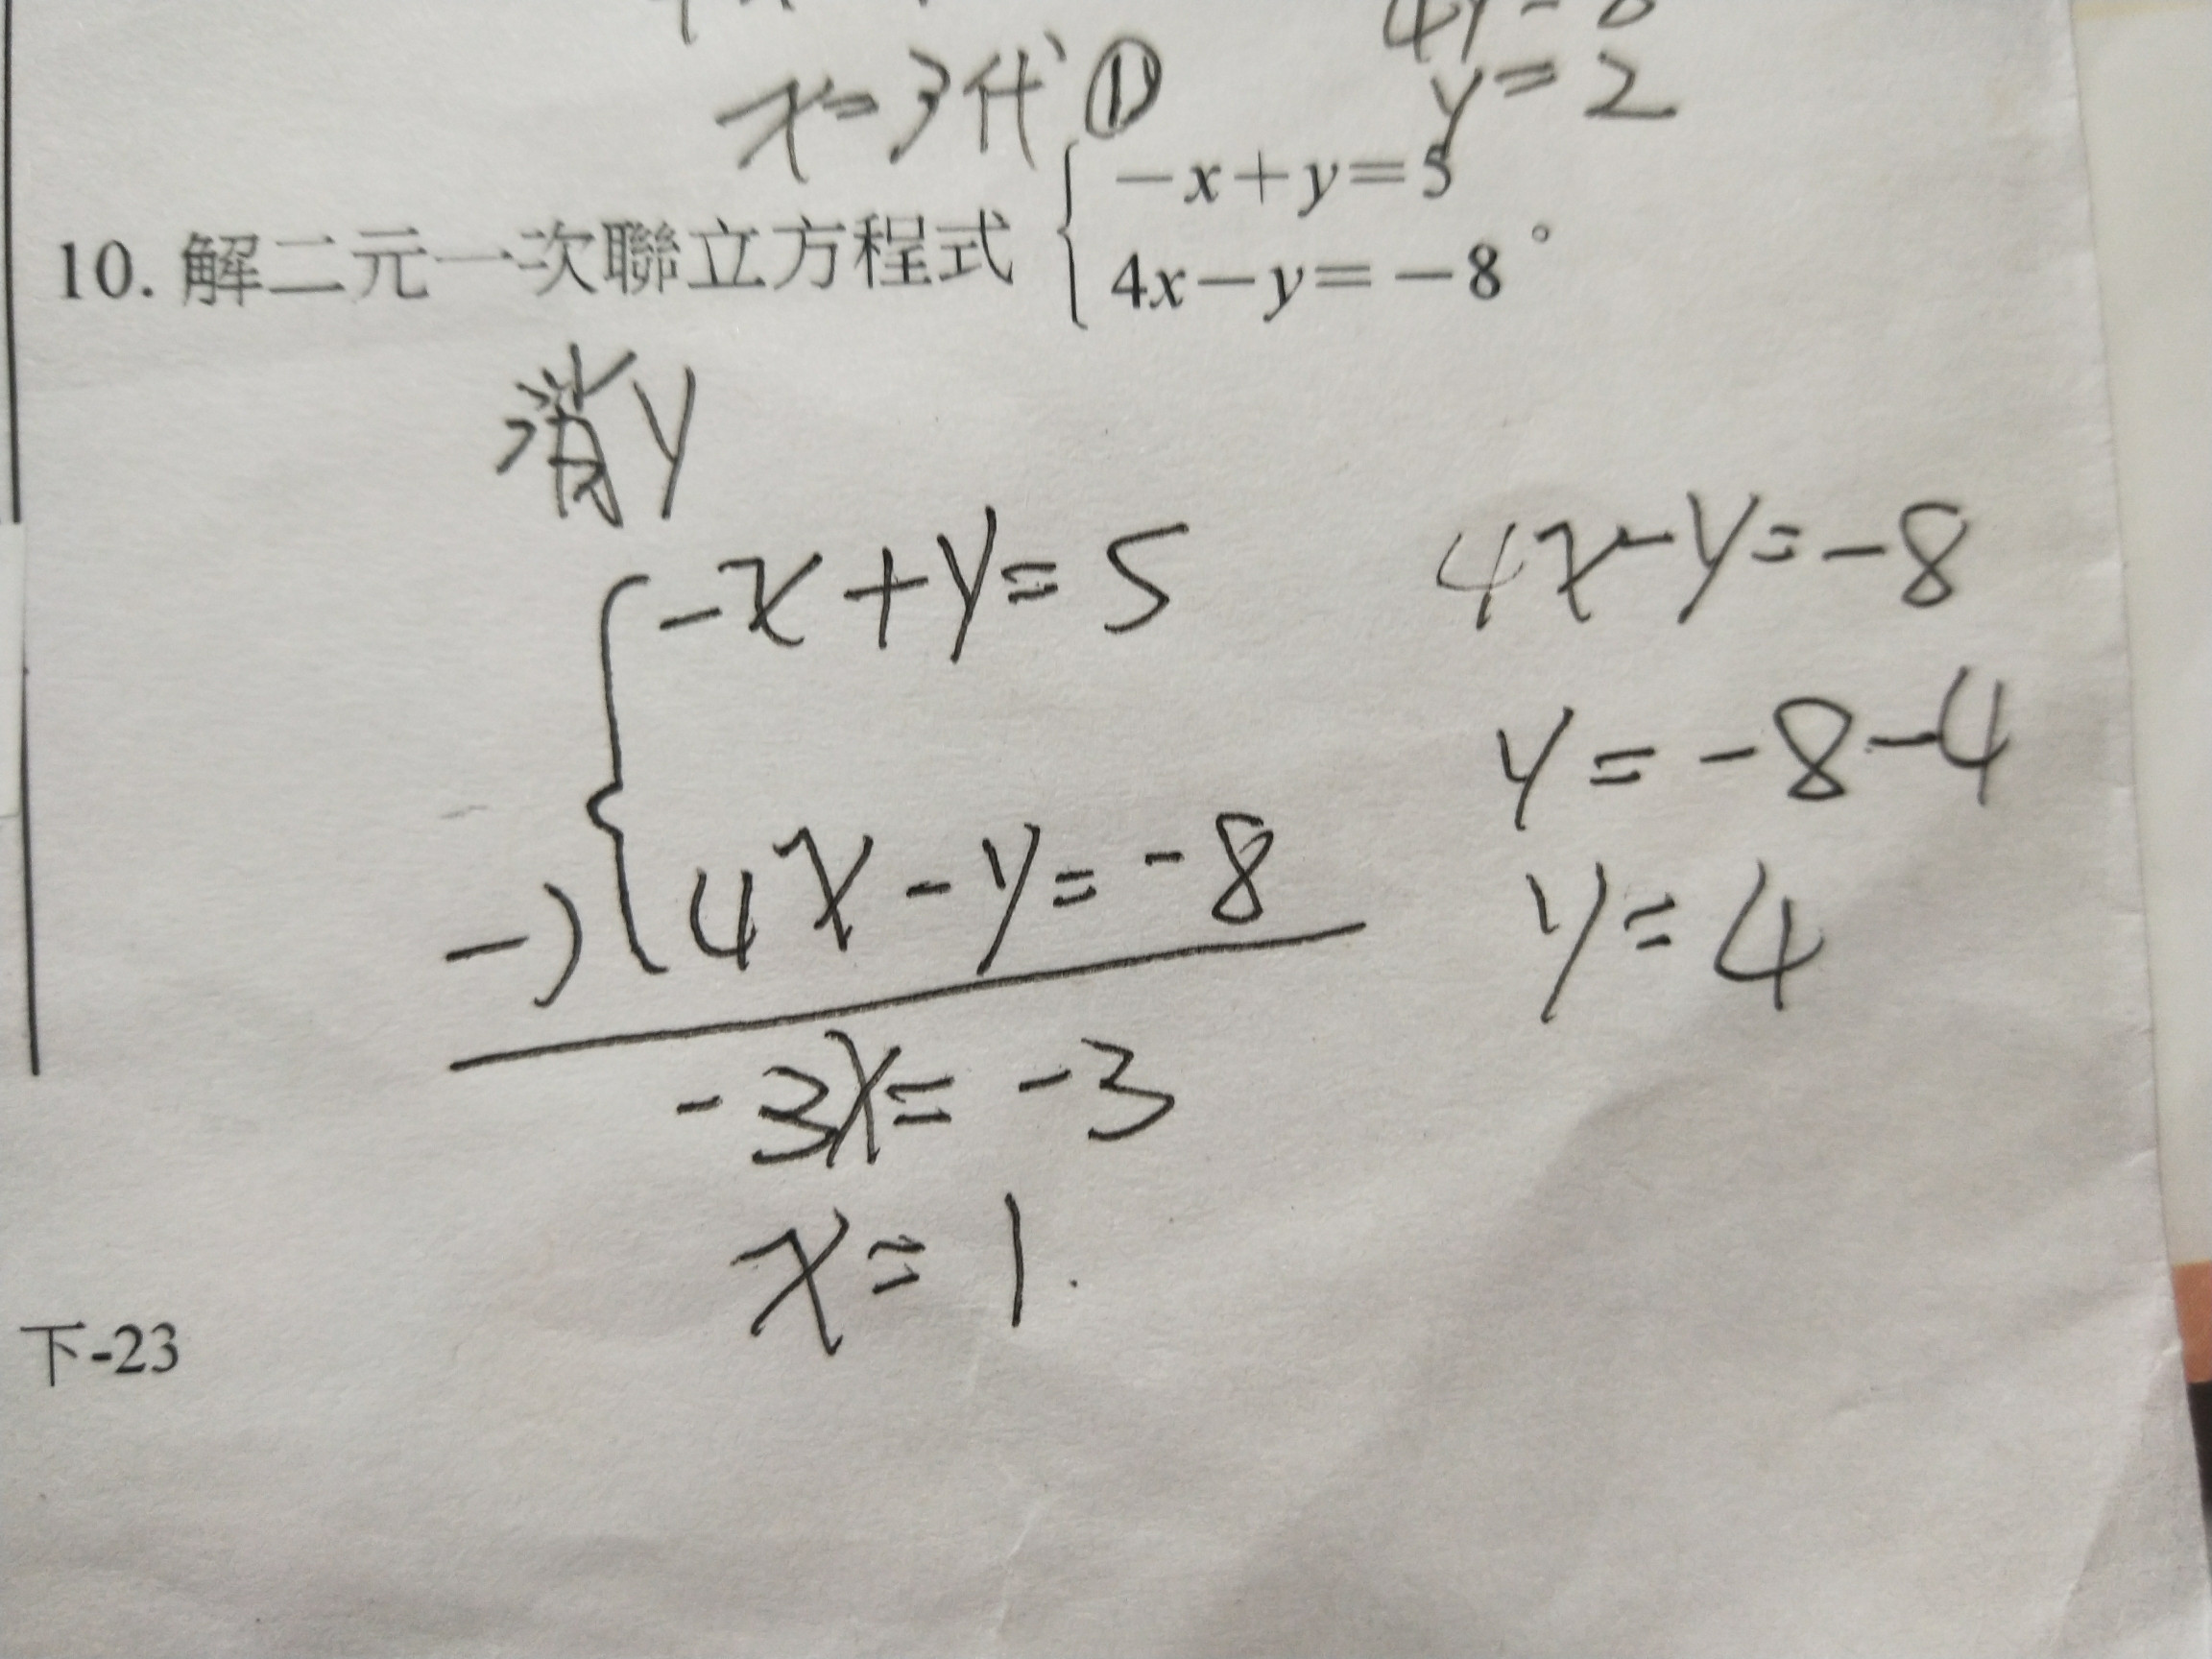 x=3代①
y=2
10. 解二元一次聯立方程式 { -x+y=5
4x-y=-8 。
消y
-x+y=5
-) 4x-y=-8
-3x=-3
x=1.
4x-y=-8
y=-8-4
y=4
下-23